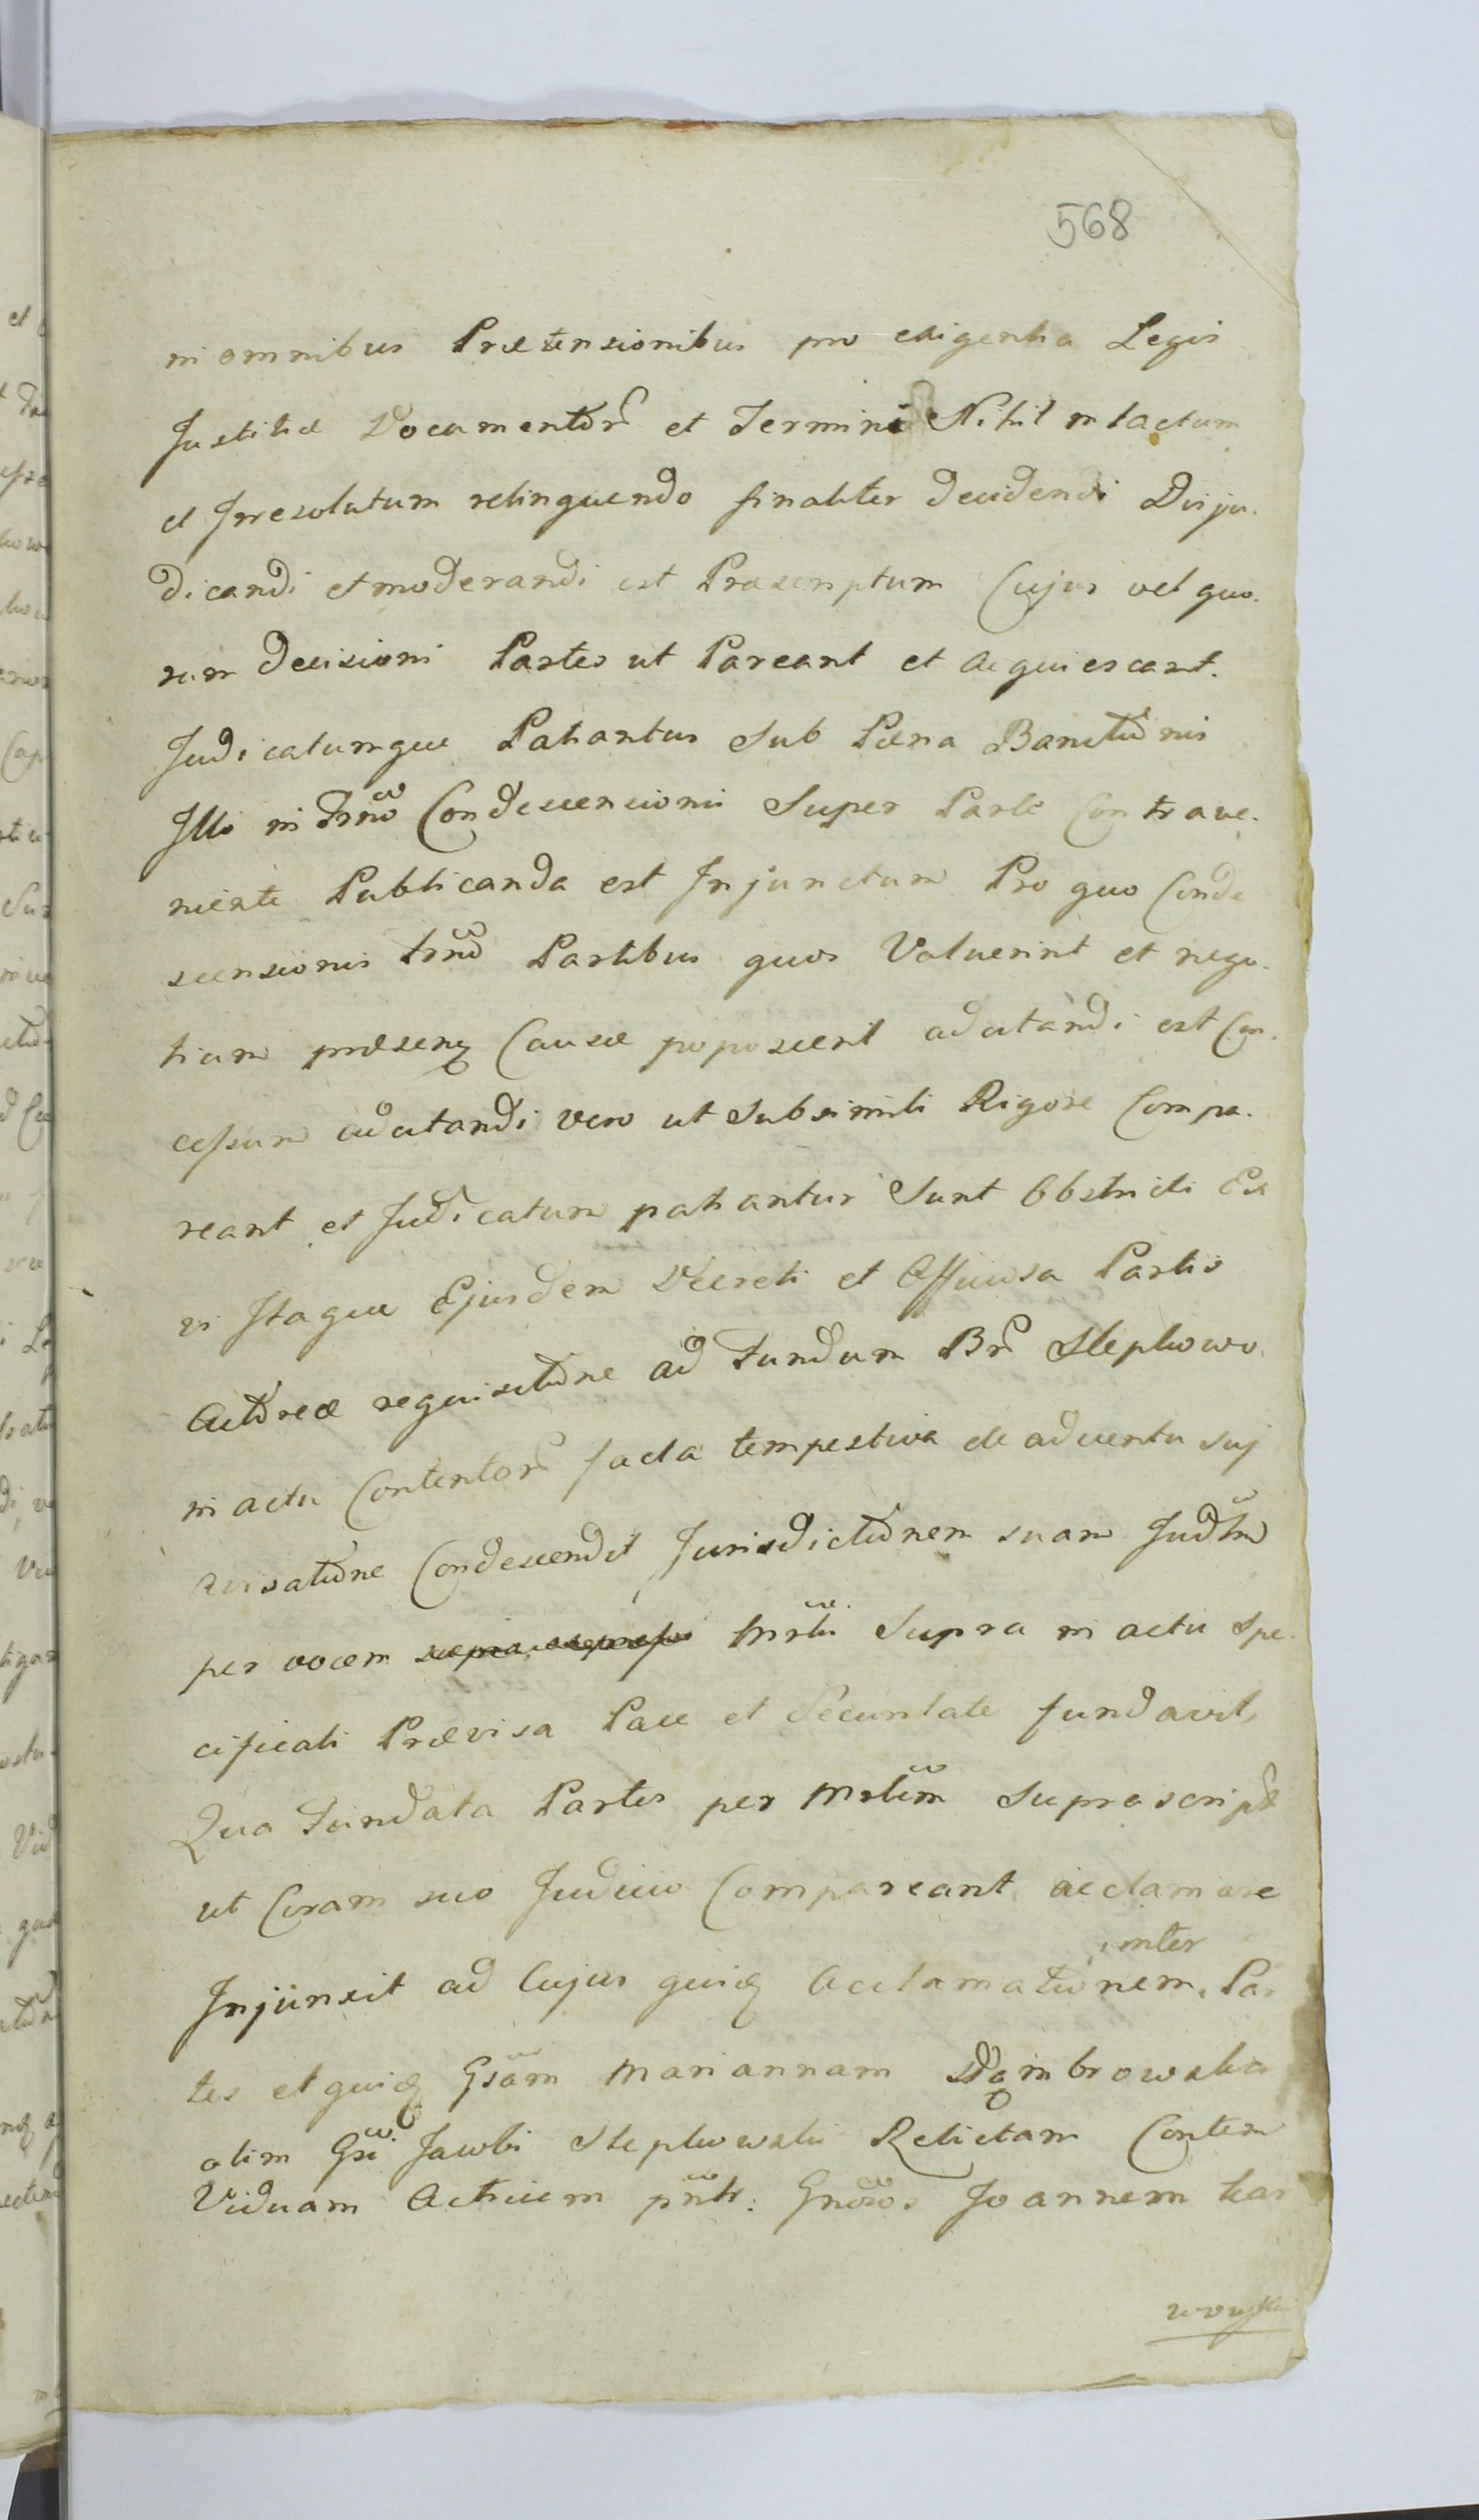 568
in omnibus Prætensionibus pro exigentia Legis
Justitiæ Documentor et Termini Nihil intactum
et Irresolutum relinquendo finaliter decidendi Diju-
dicandi et moderandi est Præscriptum Cujus vel quo-
rum decisioni Partes ut Pareant et acquiescant.
Judicatumque Patiantur Sub Pæna Banitionis
Illo in Trno Condescensionis Super Parte Contrave-
niente Publicanda est Injunctum Pro quo Conde
scensionis trno Partibus quos Voluerint et nego-
tium præsenq Causæ poposcerit adcitandi est Con-
cessum adcitandi vero ut Sub simili Rigore Compa-
reant et Judicatum patiantur Sunt Obstricti Ex
vi Itaque Ejusdem Decreti et Officiosa Partis
Actoreæ requisitione ad Fundum Br Slepkowo
in actu Contentor facta tempestiva de adventu suj
avisatione Condescendit Jurisdictionem suam Judtm
per vocem Mrlis Supra in actu spe-
cificati Prævisa Pace et Securitate fundavit,
Qua Fundata Partes per Mrlem Suprascript
ut Coram suo Judicio Compareant acclamare
Injunxit ad Cujus quiq Acclamationem inter Par
tes et quiq Gsam Mariannam Dąmbrowska
olim Gsi Jacobi Slepkowski Relictam Contem
Viduam Actricem pntr: Gnosos Joannem Kar